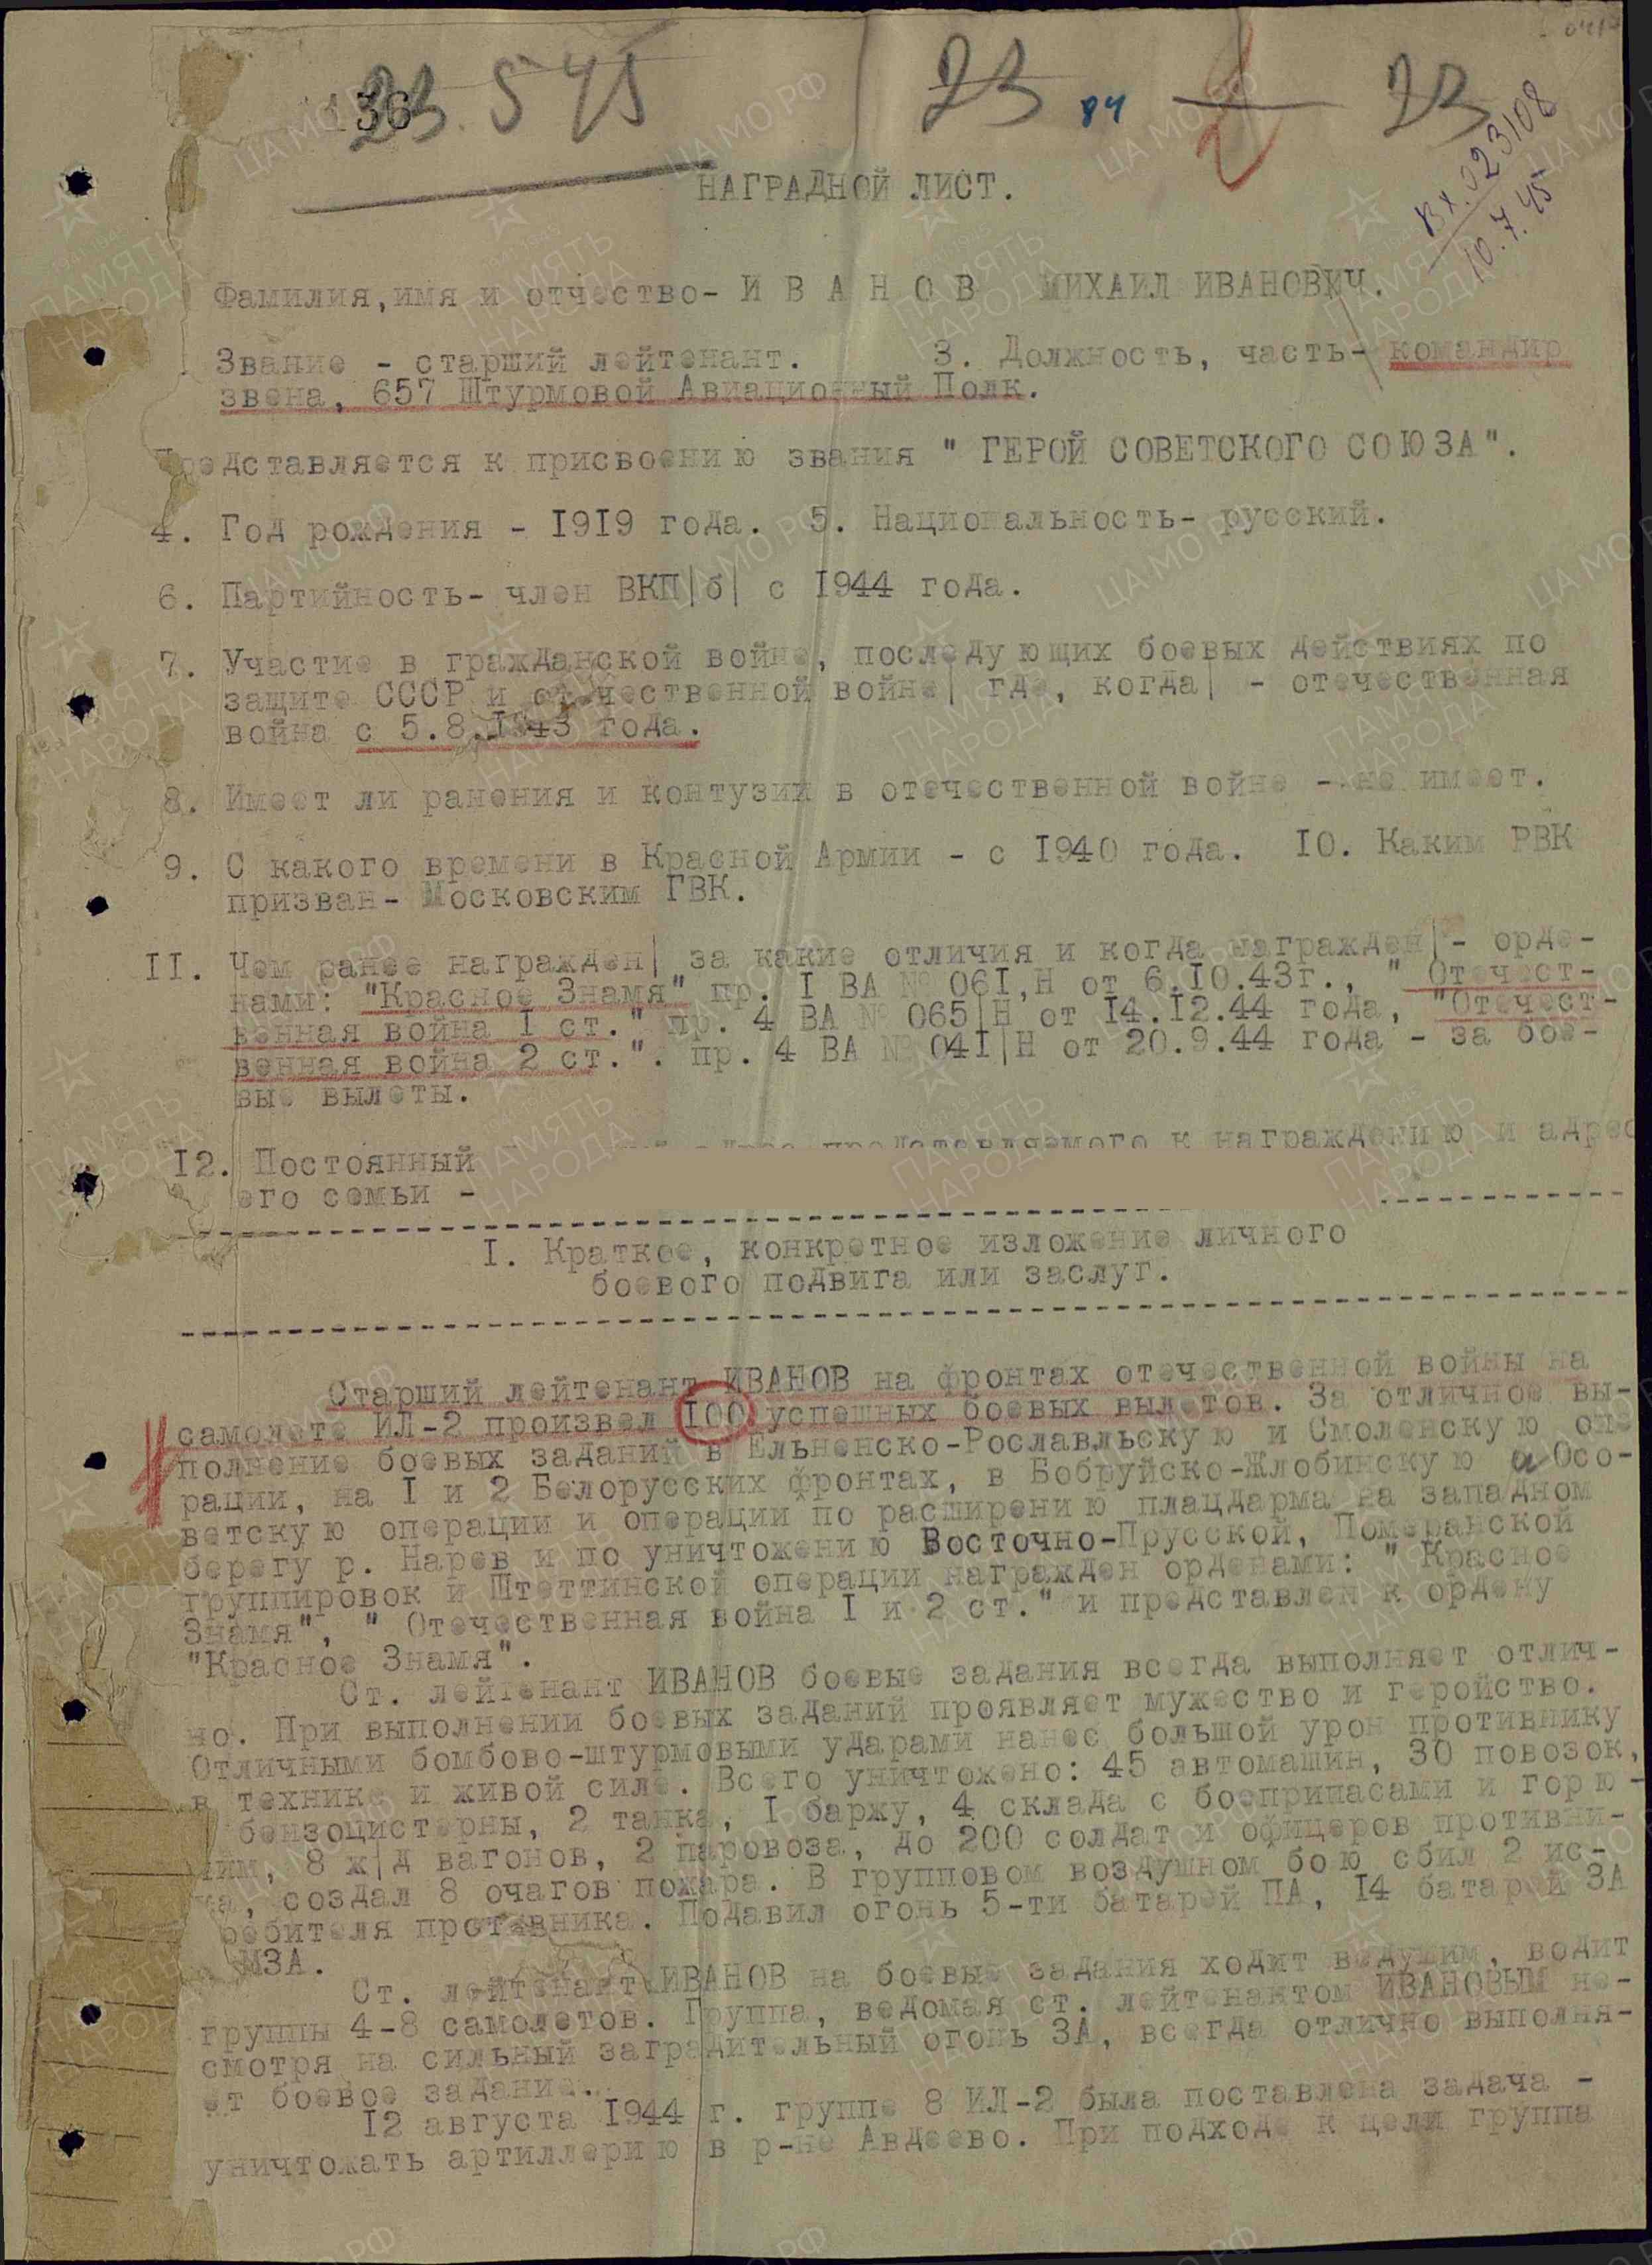 136
23. 5 45
23
84
23
Вх. 023108
10.7.45
НАГРАДНОЙ ЛИСТ.
Фамилия, имя и отчество- И В А Н О В МИХАИЛ ИВАНОВИЧ.
Звание - старший лейтенант. 3. Должность, часть- командир
звена, 657 Штурмовой Авиационный Полк.
Представляется к присвоению звания " ГЕРОЙ СОВЕТСКОГО СОЮЗА".
4. Год рождения - 1919 года. 5. Национальность- русский.
6. Партийность- член ВКП|б| с 1944 года.
7. Участие в гражданской войне, последующих боевых действиях по
защите СССР и отечественной войне| где, когда| - отечественная
война с 5.8.1943 года.
8. Имеет ли ранения и контузии в отечественной войне - не имеет.
9. С какого времени в Красной Армии - с 1940 года. 10. Каким РВК
призван- Московским ГВК.
11. Чем ранее награжден| за какие отличия и когда награжден|- орде-
нами: "Красное Знамя" пр. 1 ВА № 061,Н от 6.10.43г., " Отечест-
венная война 1 ст." пр. 4 ВА № 065|Н от 14.12.44 года, "Отечест-
венная война 2 ст.". пр. 4 ВА № 041|Н от 20.9.44 года - за бое-
вые вылеты.
12. Постоянный адрес представляемого к награждению и адрес
его семьи -
1. Краткое, конкретное изложение личного
боевого подвига или заслуг.
Старший лейтенант ИВАНОВ на фронтах отечественной войны на
самолете ИЛ-2 произвел 100 успешных боевых вылетов. За отличное вы-
полнение боевых заданий в Ельненско-Рославльскую и Смоленскую опе
рации, на 1 и 2 Белорусских фронтах, в Бобруйско-Жлобинскую и Осо-
ветскую операции и операции по расширению плацдарма на западном
берегу р. Нарев и по уничтожению Восточно-Прусской, Померанской
группировок и Штеттинской операции награжден орденами: " Красное
Знамя", " Отечественная война 1 и 2 ст." и представлен к ордену
"Красное Знамя".
Ст. лейтенант ИВАНОВ боевые задания всегда выполняет отлич-
но. При выполнении боевых заданий проявляет мужество и геройство.
Отличными бомбово-штурмовыми ударами нанес большой урон противнику
в технике и живой силе. Всего уничтожено: 45 автомашин, 30 повозок,
бензоцистерны, 2 танка, 1 баржу, 4 склада с боеприпасами и горю-
чим, 8 ж|д вагонов, 2 паровоза, до 200 солдат и офицеров противни-
ка, создал 8 очагов пожара. В групповом воздушном бою сбил 2 ис-
ребителя противника. Подавил огонь 5-ти батарей ПА, 14 батарей ЗА
МЗА.
Ст. лейтенант ИВАНОВ на боевые задания ходит ведущим, водит
группы 4-8 самолетов. Группа, ведомая ст. лейтенантом ИВАНОВЫМ не-
смотря на сильный заградительный огонь ЗА, всегда отлично выполня-
ет боевое задание.
12 августа 1944 г. группе 8 ИЛ-2 была поставлена задача -
уничтожать артиллерию в р-не Авдеево. При подходе к цели группа